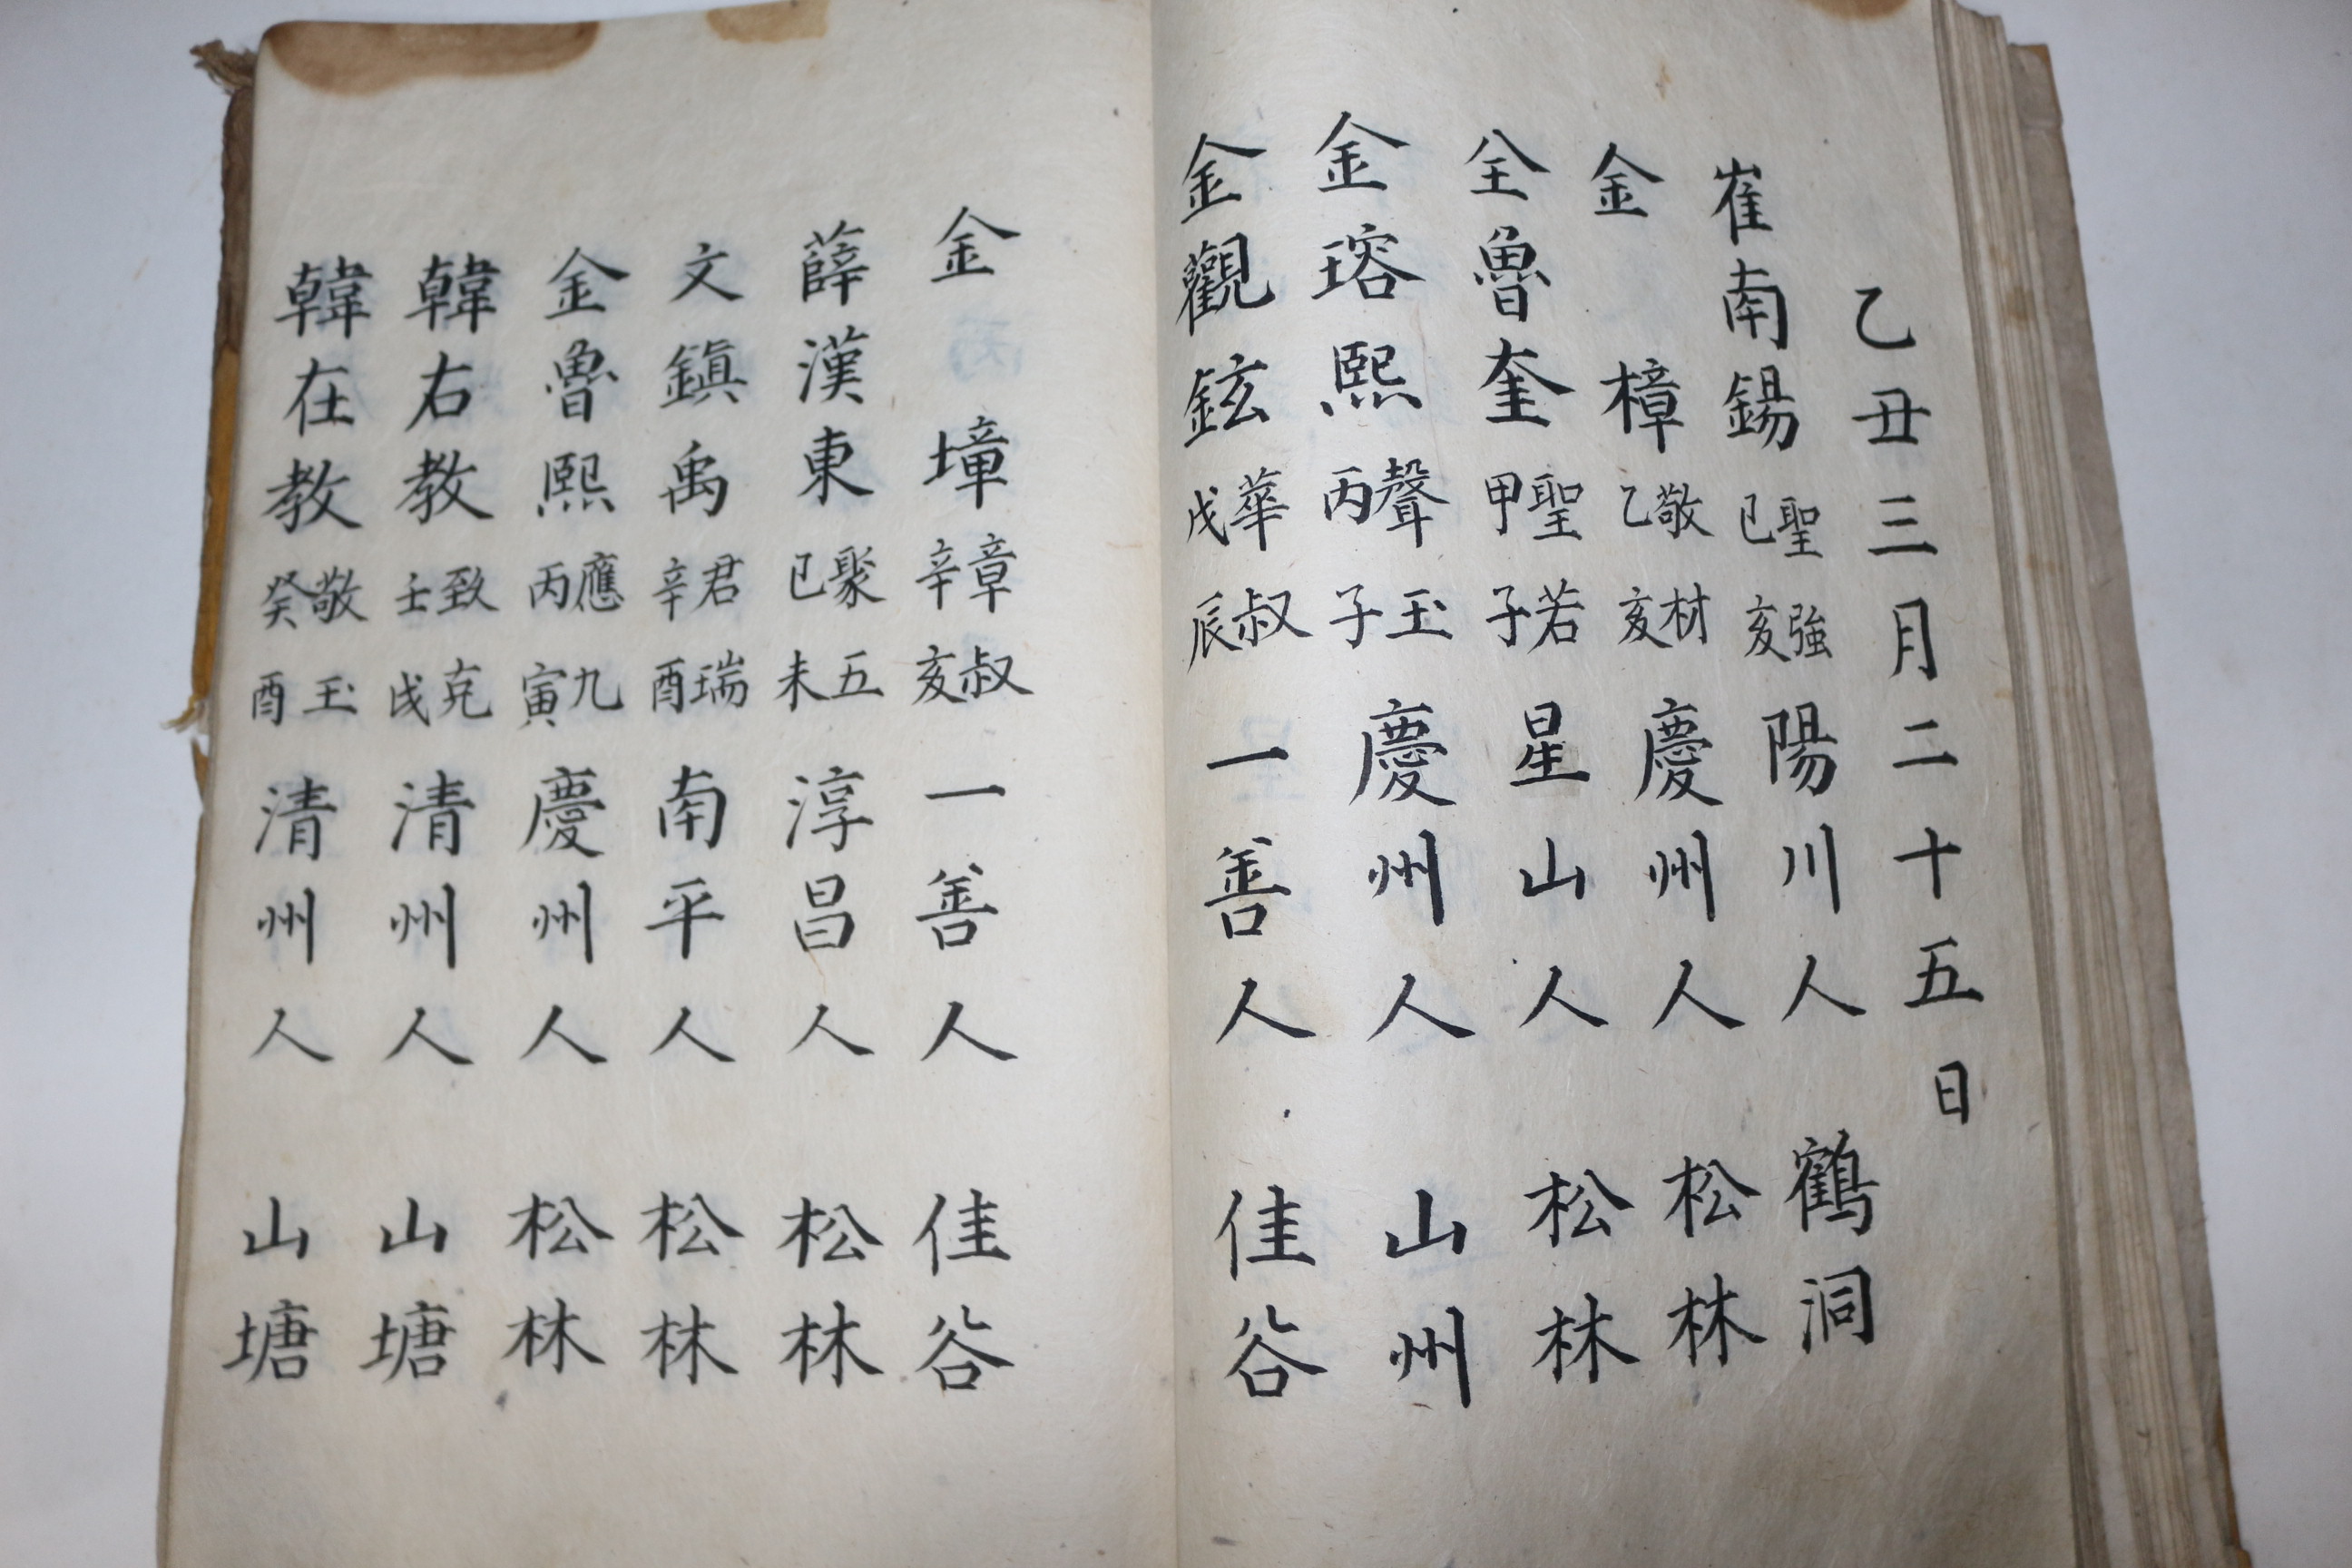 乙丑三月二十五日
崔南錫 聖強 己亥 陽川人 鶴洞
金樟 敬材 乙亥 慶州人 松林
全魯奎 聖若 甲子 星山人 松林
金瑢熙 聲玉 丙子 慶州人 山州
金觀鉉 華叔 戊辰 一善人 佳谷
金墇 章叔 辛亥 一善人 佳谷
薛漢東 聚五 己未 淳昌人 松林
文鎭禹 君瑞 辛酉 南平人 松林
金魯熙 應九 丙寅 慶州人 松林
韓右教 致克 壬戌 清州人 山塘
韓在教 敬玉 癸酉 清州人 山塘